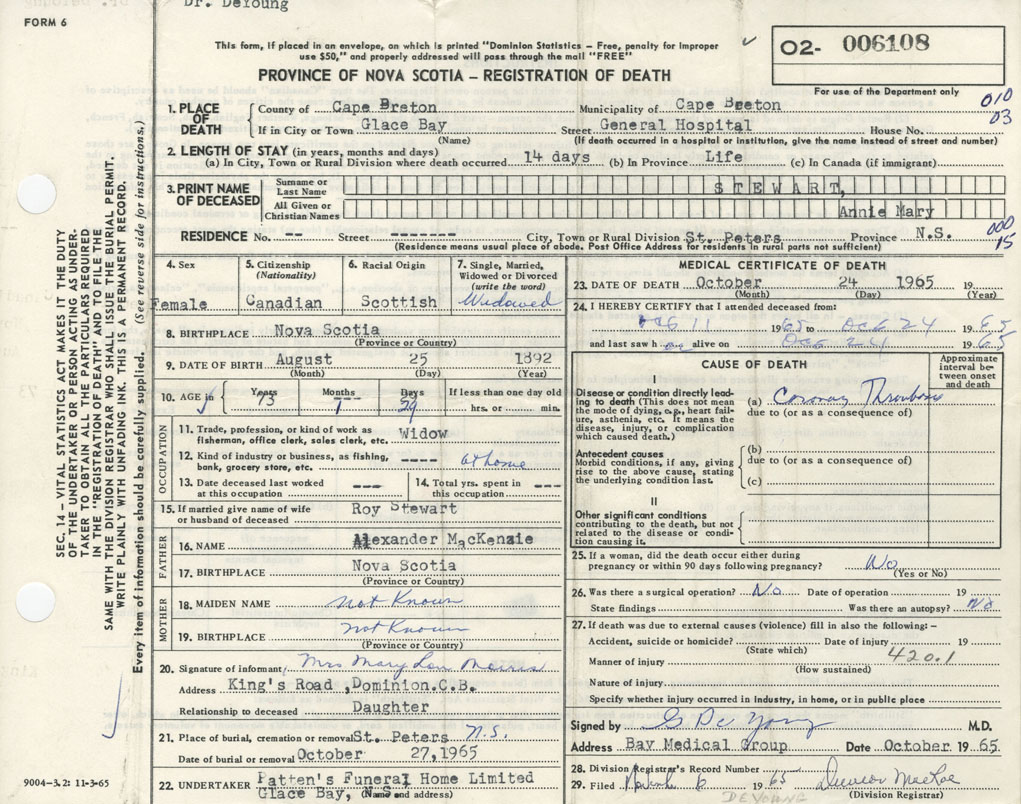 Dr. DeYoung
FORM 6
This form, if placed in an envelope, on which is printed "Dominion Statistics – Free, penalty for improper
use $50," and properly addressed will pass through the mail "FREE"
02- 006108
PROVINCE OF NOVA SCOTIA – REGISTRATION OF DEATH
For use of the Department only
010
03
1. PLACE OF DEATH
County of Cape Breton Municipality of Cape Breton
If in City or Town Glace Bay Street General Hospital House No.
(Name) (If death occurred in a hospital or institution, give the name instead of street and number)
2. LENGTH OF STAY (in years, months and days)
(a) In City, Town or Rural Division where death occurred 14 days (b) In Province Life (c) In Canada (if immigrant)
3. PRINT NAME OF DECEASED
Surname or Last Name STEWART,
All Given or Christian Names Annie Mary
000
15
RESIDENCE No. --- Street ------- City, Town or Rural Division St. Peters Province N.S.
(Residence means usual place of abode. Post Office Address for residents in rural parts not sufficient)
4. Sex
Female
5. Citizenship
(Nationality)
Canadian
6. Racial Origin
Scottish
7. Single, Married,
Widowed or Divorced
(write the word)
Widowed
8. BIRTHPLACE Nova Scotia
(Province or Country)
9. DATE OF BIRTH August 25 1892
(Month) (Day) (Year)
10. AGE in Years Months Days If less than one day old
73 1 29 hrs. or min.
OCCUPATION
11. Trade, profession, or kind of work as
fisherman, office clerk, sales clerk, etc. Widow
12. Kind of industry or business, as fishing,
bank, grocery store, etc. ---- at home
13. Date deceased last worked
at this occupation ---
14. Total yrs. spent in
this occupation ---
15. If married give name of wife
or husband of deceased Roy Stewart
FATHER
16. NAME Alexander MacKenzie
17. BIRTHPLACE Nova Scotia
(Province or Country)
MOTHER
18. MAIDEN NAME not Known
19. BIRTHPLACE not Known
(Province or Country)
20. Signature of informant Mrs Mary Lou Morris
Address King's Road ,Dominion.C.B.
Relationship to deceased Daughter
21. Place of burial, cremation or removal St. Peters N.S.
Date of burial or removal October 27,1965
22. UNDERTAKER Patten's Funeral Home Limited
Glace Bay, N.S.
(Name and address)
MEDICAL CERTIFICATE OF DEATH
23. DATE OF DEATH October 24 1965
(Month) (Day) (Year)
24. I HEREBY CERTIFY that I attended deceased from:
Oct 11 1965 to Oct 24 1965
and last saw h er alive on Oct 24 1965
CAUSE OF DEATH
Approximate
interval be-
tween onset
and death
I
Disease or condition directly lead-
ing to death (This does not mean
the mode of dying, e.g., heart fail-
ure, asthenia, etc. It means the
disease, injury, or complication
which caused death.)
(a) Coronary Thrombosis
due to (or as a consequence of)
Antecedent causes
Morbid conditions, if any, giving
rise to the above cause, stating
the underlying condition last.
(b)
due to (or as a consequence of)
(c)
II
Other significant conditions
contributing to the death, but not
related to the disease or condi-
tion causing it.
25. If a woman, did the death occur either during
pregnancy or within 90 days following pregnancy? No
(Yes or No)
26. Was there a surgical operation? No Date of operation 19
State findings Was there an autopsy? No
27. If death was due to external causes (violence) fill in also the following:–
Accident, suicide or homicide? Date of injury 19
(State which)
420.1
Manner of injury
(How sustained)
Nature of injury
Specify whether injury occurred in industry, in home, or in public place
Signed by G De Young M.D.
Address Bay Medical Group Date October 1965.
28. Division Registrar's Record Number
29. Filed 6 1965
(Division Registrar)
DE YOUNG
SEC. 14 – VITAL STATISTICS ACT MAKES IT THE DUTY
OF THE UNDERTAKER OR PERSON ACTING AS UNDER-
TAKER TO OBTAIN ALL THE PARTICULARS REQUIRED
IN THE "REGISTRATION OF DEATH" AND TO FILE THE
SAME WITH THE DIVISION REGISTRAR WHO SHALL ISSUE THE BURIAL PERMIT.
WRITE PLAINLY WITH UNFADING INK. THIS IS A PERMANENT RECORD.
Every item of information should be carefully supplied. (See reverse side for instructions.)
9004–3.2: 11-3-65